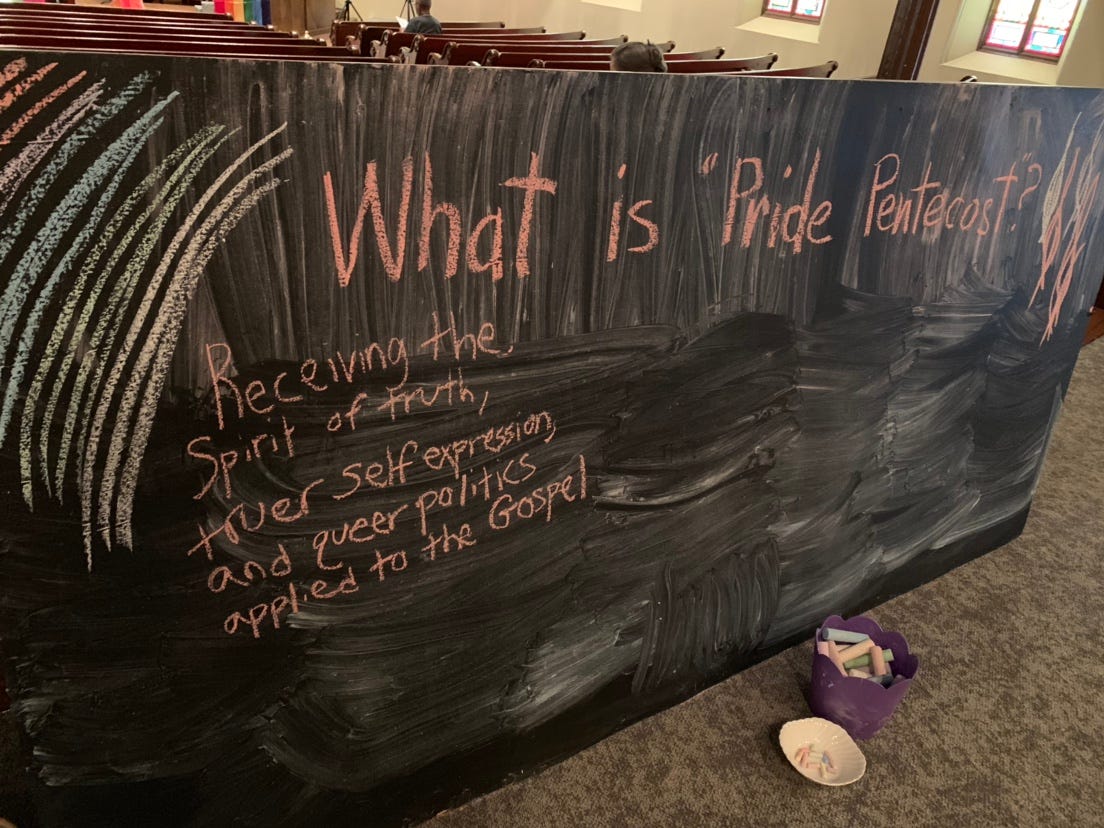 What is "Pride Pentecost"?
Receiving the
Spirit of truth,
truer self expression,
and queer politics
applied to the Gospel